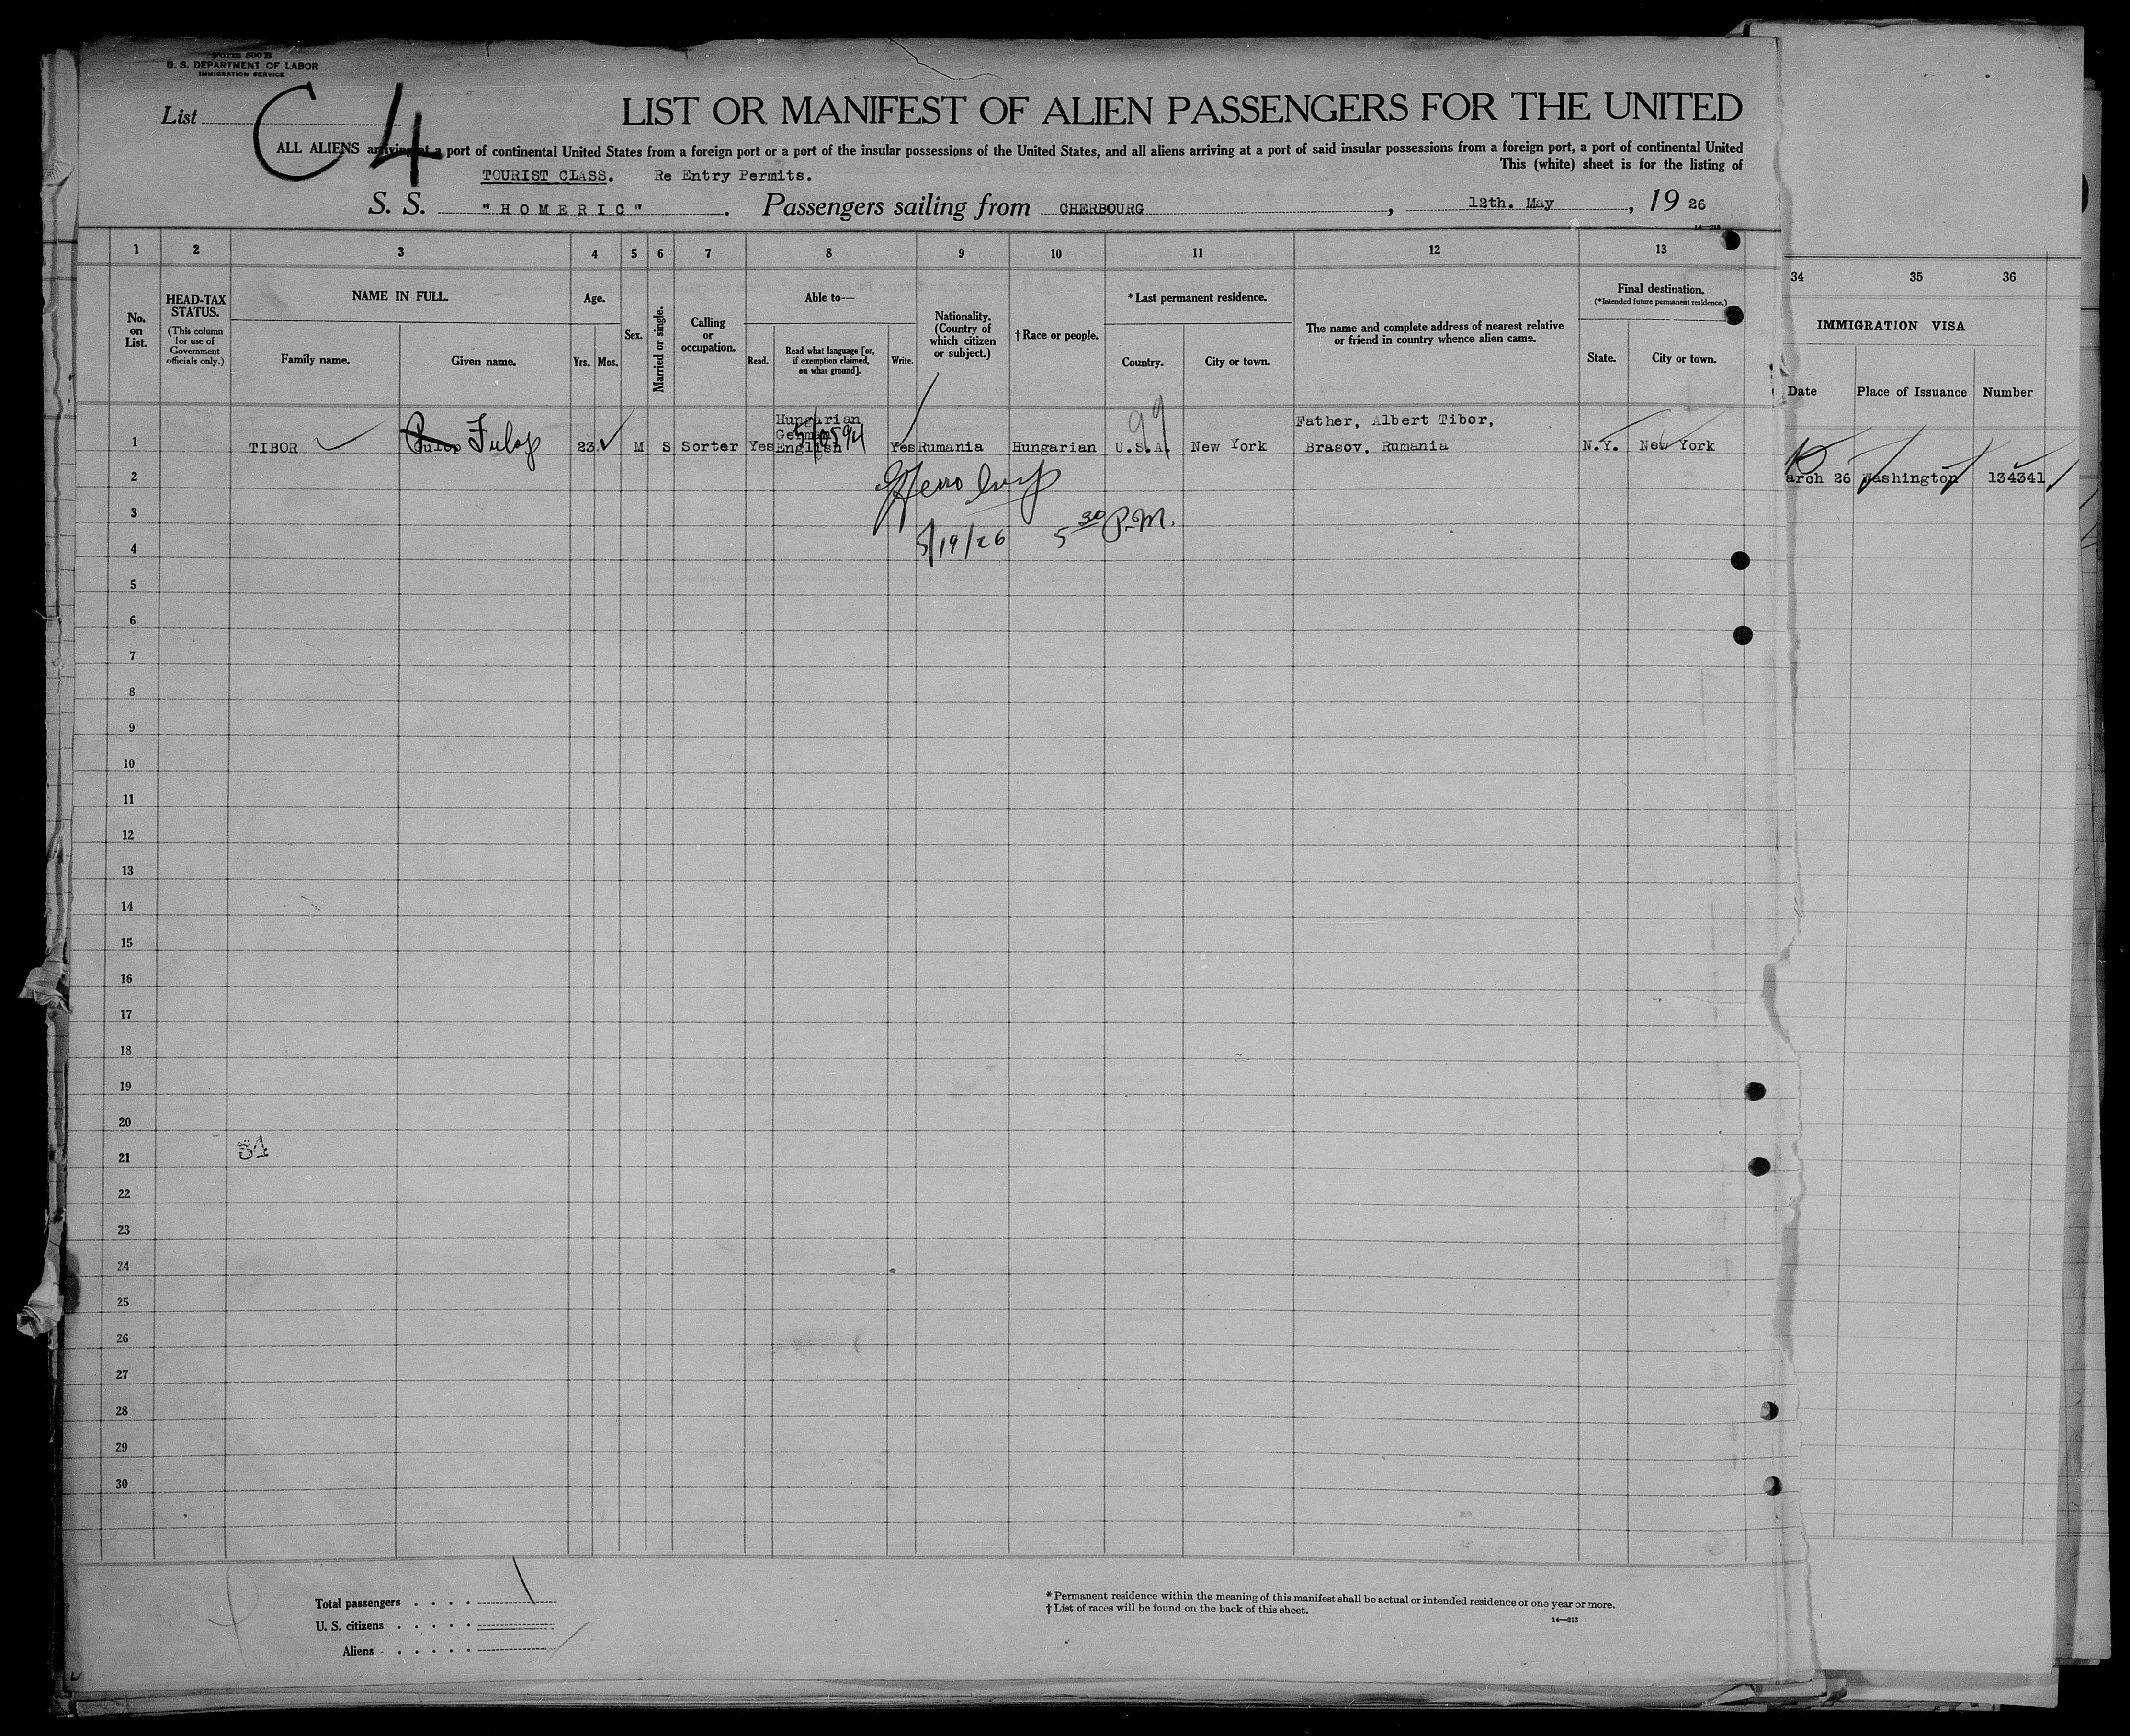 Form 500 B
U. S. DEPARTMENT OF LABOR
IMMIGRATION SERVICE
List C 4
LIST OR MANIFEST OF ALIEN PASSENGERS FOR THE UNITED
ALL ALIENS arriving at a port of continental United States from a foreign port or a port of the insular possessions of the United States, and all aliens arriving at a port of said insular possessions from a foreign port, a port of continental United
This (white) sheet is for the listing of
TOURIST CLASS. Re Entry Permits.
S. S. "HOMERIC". Passengers sailing from CHERBOURG, 12th. May, 19 26
14—213
1 2 3 4 5 6 7 8 9 10 11 12 13
No. on List.
HEAD-TAX STATUS.
(This column for use of Government officials only.)
NAME IN FULL.
Family name. Given name.
Age.
Yrs. Mos.
Sex.
Married or single.
Calling or occupation.
Able to—
Read. Read what language [or, if exemption claimed, on what ground]. Write.
Nationality. (Country of which citizen or subject.)
†Race or people.
*Last permanent residence.
Country. City or town.
The name and complete address of nearest relative or friend in country whence alien came.
Final destination.
(*Intended future permanent residence.)
State. City or town.
34 35 36
IMMIGRATION VISA
Date Place of Issuance Number
1 TIBOR Fulop 23 M S Sorter Yes Hungarian German English Yes Rumania Hungarian U.S.A. New York Father, Albert Tibor, Brasov, Rumania N.Y. New York
99
arch 26 Washington 134341
2
3
5/19/26 5 30 P.M.
4
5
6
7
8
9
10
11
12
13
14
15
16
17
18
19
20
21
34
22
23
24
25
26
27
28
29
30
Total passengers . . . . 1
U. S. citizens . . . . .
Aliens . . . . . .
* Permanent residence within the meaning of this manifest shall be actual or intended residence of one year or more.
† List of races will be found on the back of this sheet.
14—213